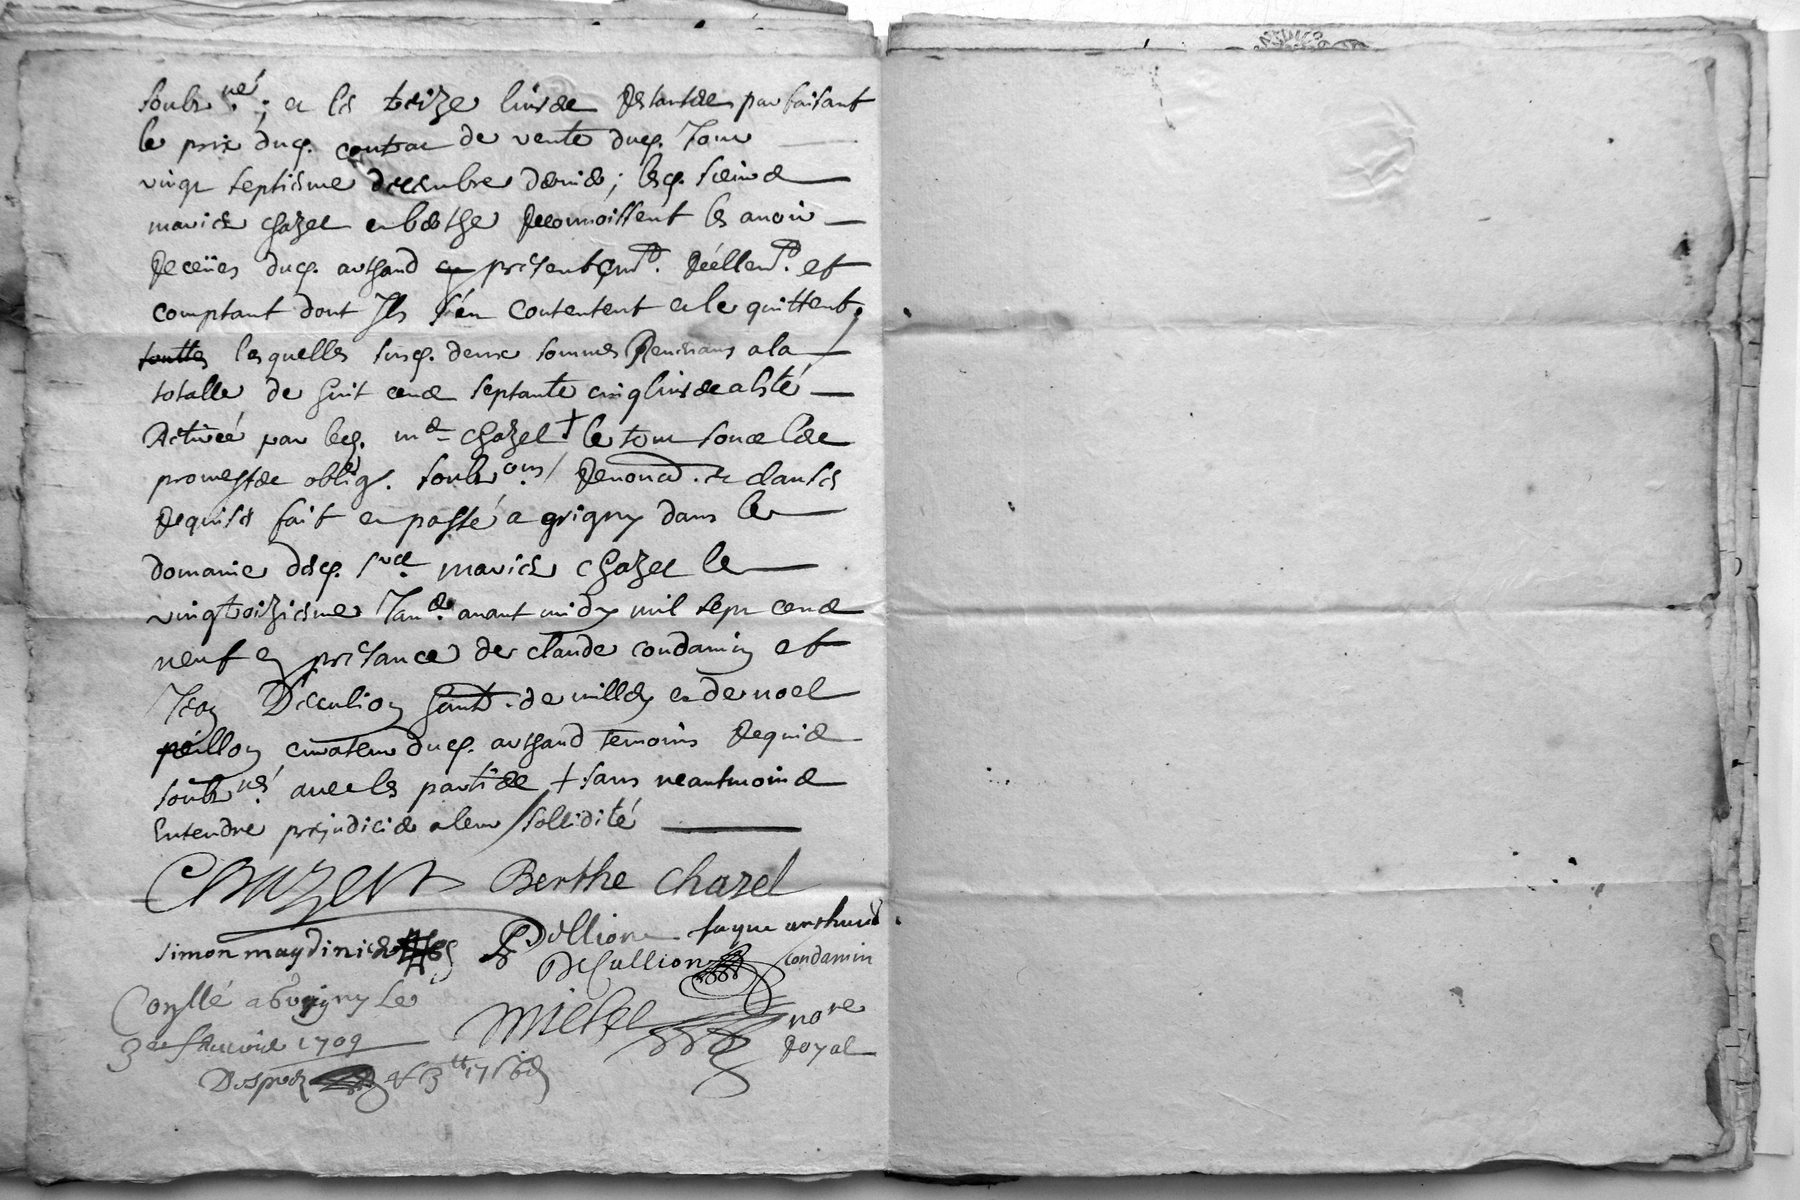 soubs.nés; et les treize livres restantes parfaisant
le prix dud. contrac de vente dud. Jour
vingt septieme decembre dernier; lesd. sieurs
mariés Chazel et berthe reconnoissent les avoir
receües dud. arthaud en presentemt. réellemt. et
comptant dont Ils s'en contentent et le quittent.
lesquelles susd. deux sommes Revenans a la
totalle de huit cens septante cinq livres a esté
Retirée par led. Chazel + le tout sous les
promesses oblig. soubs.ons / renond. et clauses
requises fait et passé a grigny dans le
domaine desd. srs. mariés Chazel le
vingt troiziesme Janer. avant midy mil sept cens
neuf en presance de claude condamin et
Jean Decullion hants. de millery et de noel
peillon curateur dud. arthaud temoins requis
soubs.nés avec les parties + sans neantmoins
Entendre prejudicier a leur sollidité
Chazel Berthe Chazel
simon arthaud
Decullion condamin
Conllé a Grigny le
3e fevrier 1709 nore
royal